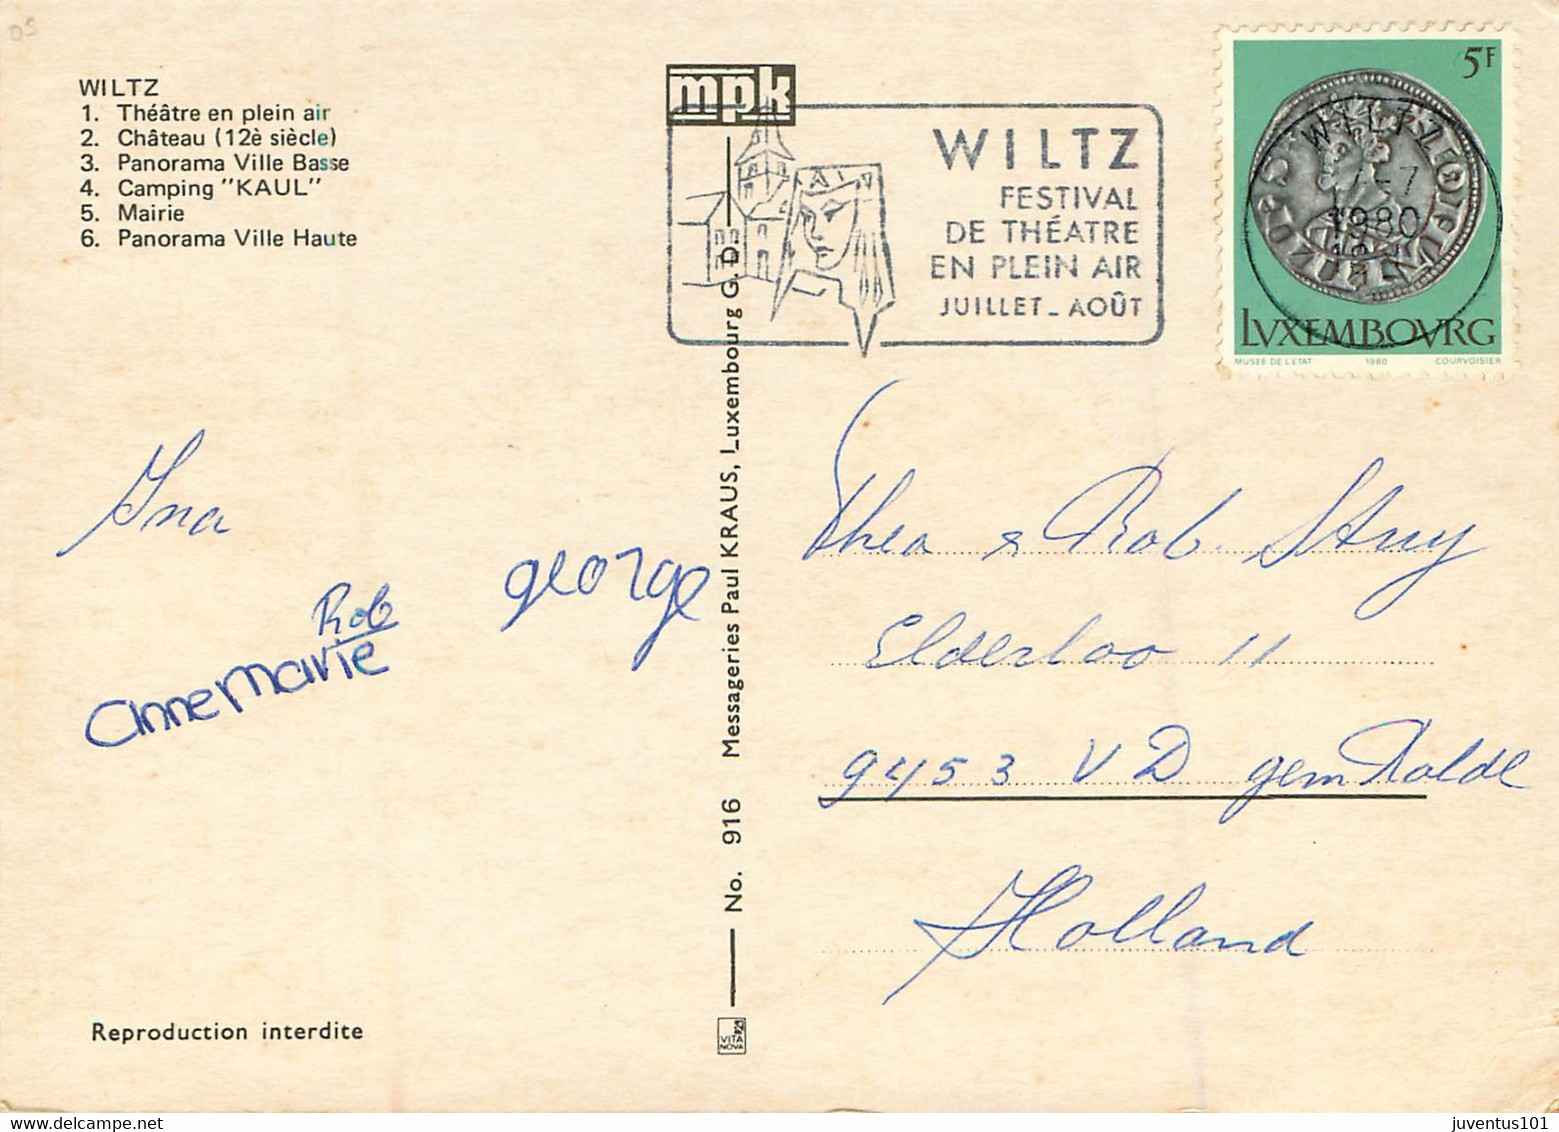 WILTZ
1. Théâtre en plein air
2. Château (12è siècle)
3. Panorama Ville Basse
4. Camping "KAUL"
5. Mairie
6. Panorama Ville Haute
mpk
WILTZ
FESTIVAL
DE THÉATRE
EN PLEIN AIR
JUILLET_AOÛT
5F
WILTZ
1980
LVXEMBOVRG
MUSEE DE L'ETAT 1980 COURVOISIER
Ina
george
Rob
annemarie
No. 916 Messageries Paul KRAUS, Luxembourg G.D.
Thea & Rob. Stuy
Elderloo 11
9453 VD gem Rolde
Holland
Reproduction interdite
VITA
NOVA
juventus101